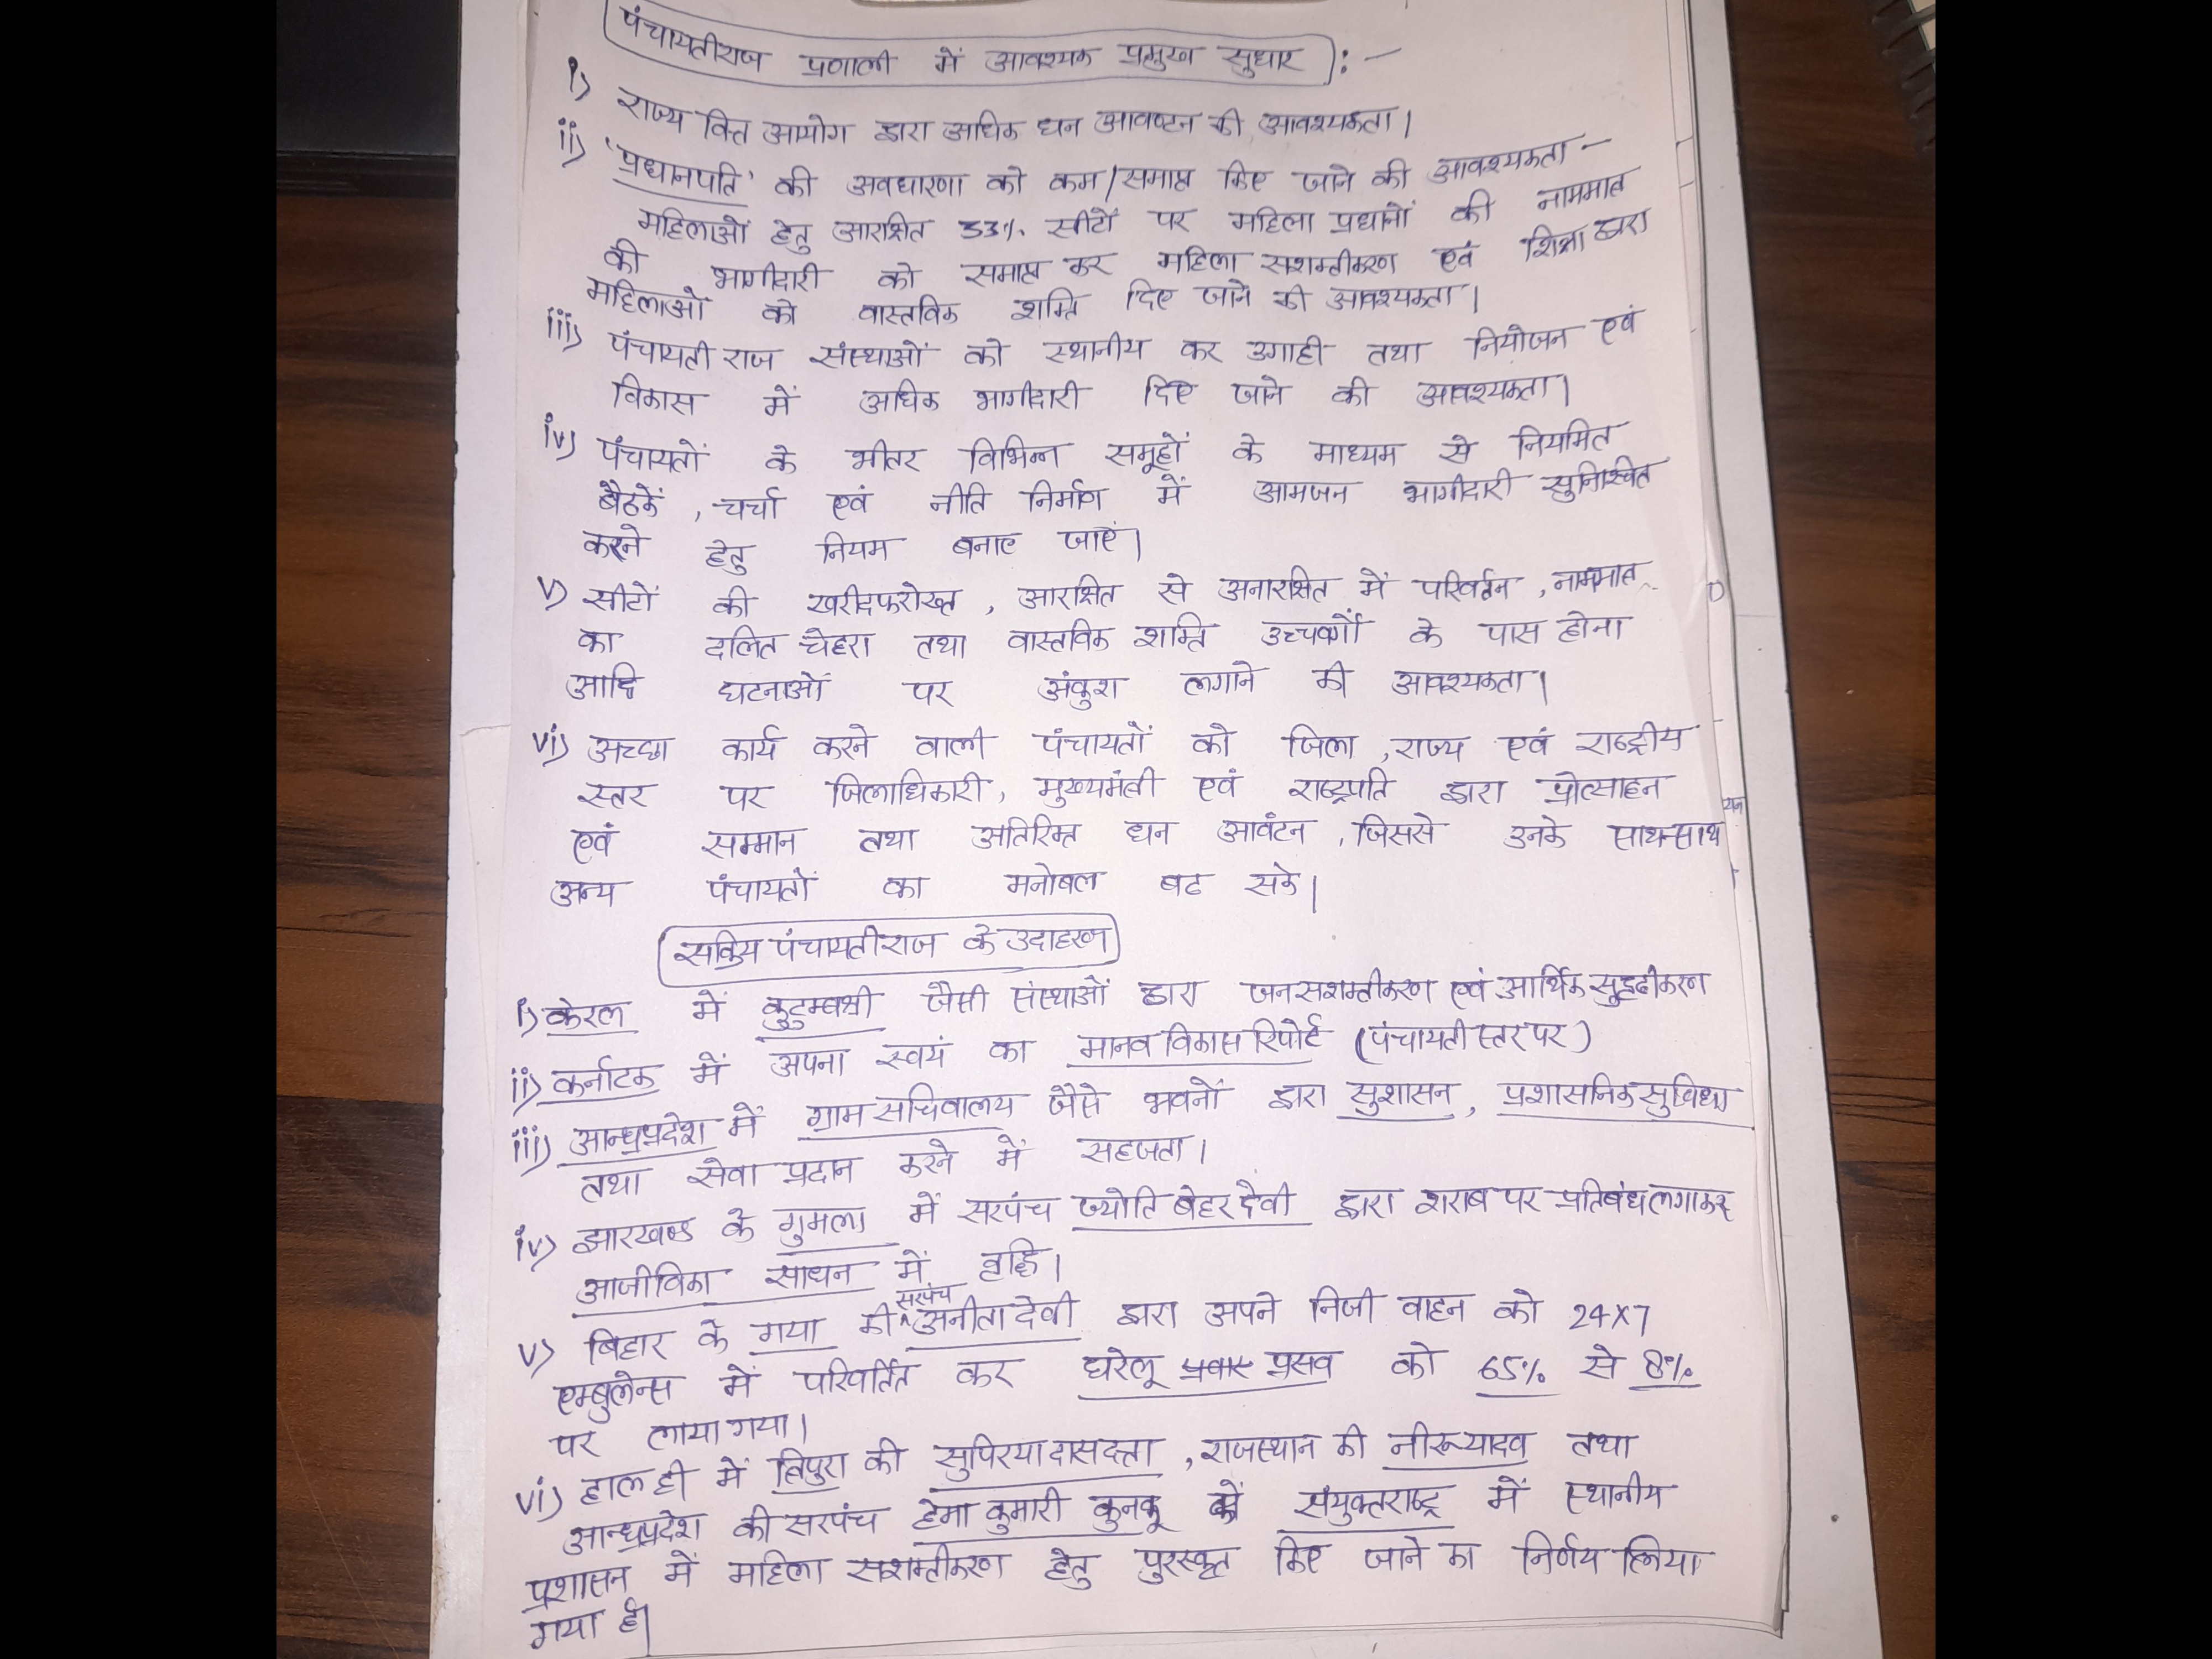 पंचायतीराज प्रणाली में आवश्यक प्रमुख सुधार :-
i) राज्य वित्त आयोग द्वारा अधिक धन आवण्टन की आवश्यकता।
ii) 'प्रधानपति' की अवधारणा को कम/समाप्त किए जाने की आवश्यकता -
महिलाओं हेतु आरक्षित 33% सीटों पर महिला प्रधानों की नाममात्र
की भागीदारी को समाप्त कर महिला सशक्तीकरण एवं शिक्षा द्वारा
महिलाओं को वास्तविक शक्ति दिए जाने की आवश्यकता।
iii) पंचायती राज संस्थाओं को स्थानीय कर उगाही तथा नियोजन एवं
विकास में अधिक भागीदारी दिए जाने की आवश्यकता।
iv) पंचायतों के भीतर विभिन्न समूहों के माध्यम से नियमित
बैठकें, चर्चा एवं नीति निर्माण में आमजन भागीदारी सुनिश्चित
करने हेतु नियम बनाए जाएं।
v) सीटों की खरीदफरोख्त, आरक्षित से अनारक्षित में परिवर्तन, नाममात्र
का दलित चेहरा तथा वास्तविक शक्ति उच्चवर्गों के पास होना
आदि घटनाओं पर अंकुश लगाने की आवश्यकता।
vi) अच्छा कार्य करने वाली पंचायतों को जिला, राज्य एवं राष्ट्रीय
स्तर पर जिलाधिकारी, मुख्यमंत्री एवं राष्ट्रपति द्वारा प्रोत्साहन
एवं सम्मान तथा अतिरिक्त धन आवंटन, जिससे उनके साथ-साथ
अन्य पंचायतों का मनोबल बढ सके।
सक्रिय पंचायतीराज के उदाहरण
i) केरल में कुटुम्बश्री जैसी संस्थाओं द्वारा जनसशक्तीकरण एवं आर्थिक सुदृढीकरण
ii) कर्नाटक में अपना स्वयं का मानव विकास रिपोर्ट (पंचायती स्तर पर)
iii) आन्ध्रप्रदेश में ग्राम सचिवालय जैसे भवनों द्वारा सुशासन, प्रशासनिक सुविधा
तथा सेवा प्रदान करने में सहजता।
iv) झारखण्ड के गुमला में सरपंच ज्योति बेहर देवी द्वारा शराब पर प्रतिबंध लगाकर
आजीविका साधन में वृद्धि।
v) बिहार के गया की सरपंच अनीता देवी द्वारा अपने निजी वाहन को 24x7
एम्बुलेन्स में परिवर्तित कर घरेलू प्रसव को 65% से 8%
पर लाया गया।
vi) हाल ही में त्रिपुरा की सुपिरया दासदत्ता, राजस्थान की नीरू यादव तथा
आन्ध्रप्रदेश की सरपंच हेमा कुमारी कुनकू को संयुक्तराष्ट्र में स्थानीय
प्रशासन में महिला सशक्तीकरण हेतु पुरस्कृत किए जाने का निर्णय लिया
गया है।